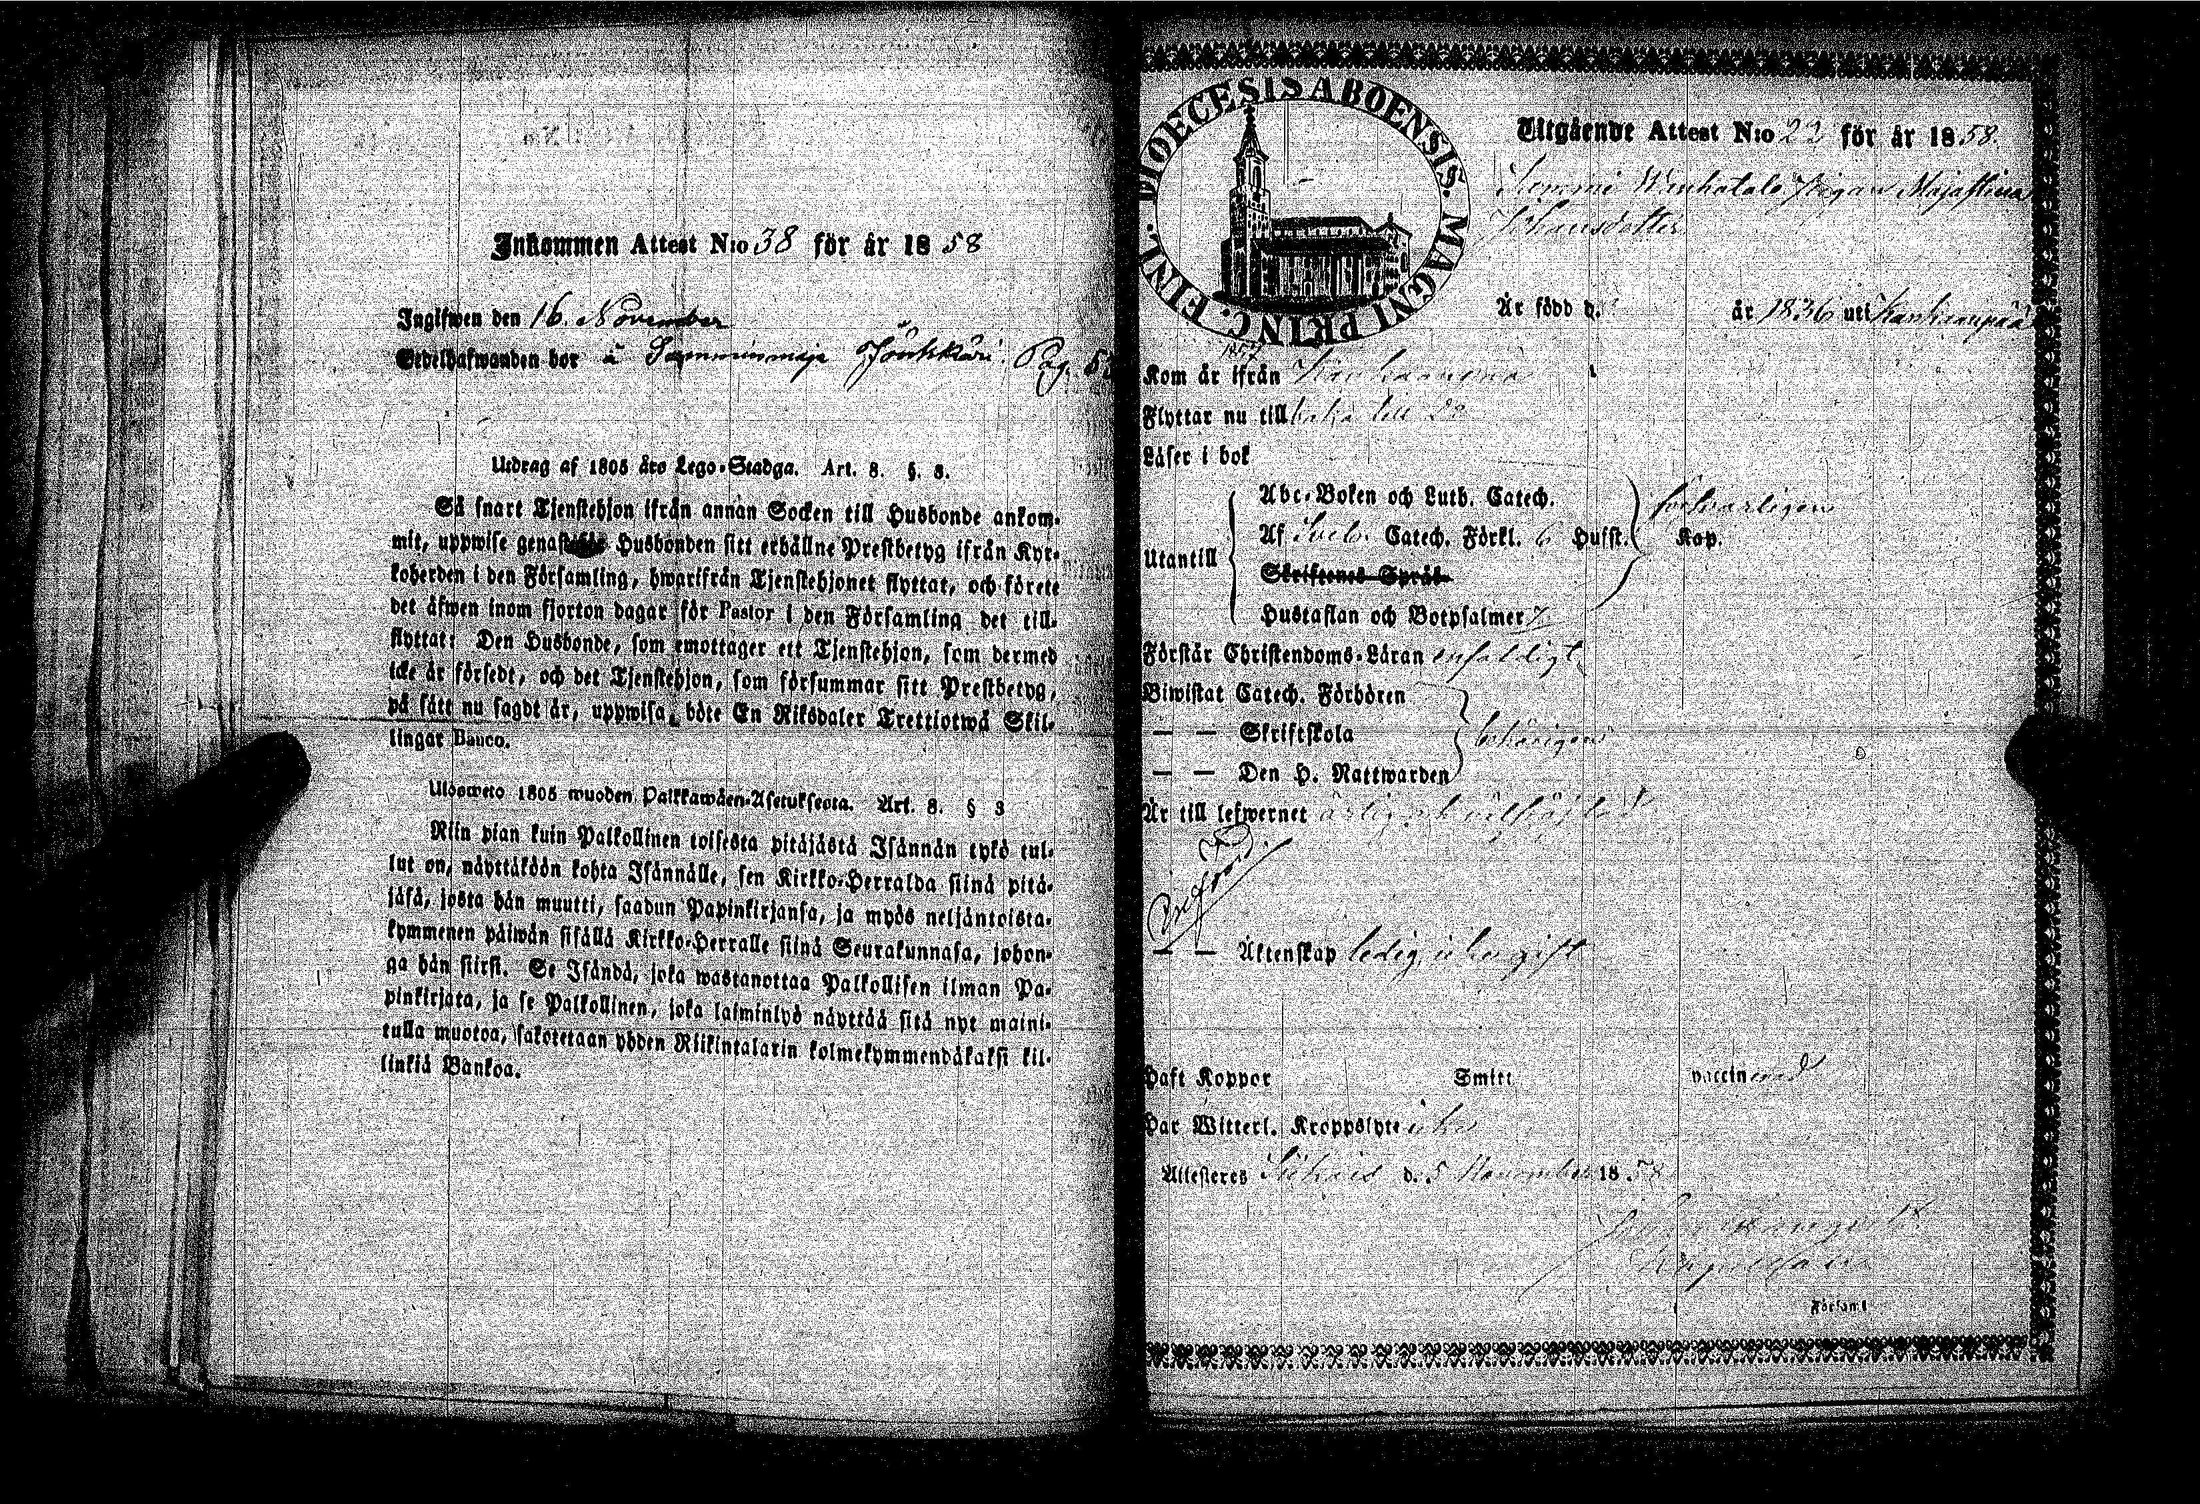 Inkommen Attest N:o 38 för år 1858
Ingifwen den 16. November
Betelhafwanden bor å Jönkkäri. Pag. 53
Utdrag af 1805 års Lego-Stadga. Art. 8. §. 3.
Så snart Tjenstehjon ifrån annan Socken till Husbonde ankom-
mit, uppwise genast Husbonden sitt erhållne Prestbetyg ifrån Kyr-
koherden i den Församling, hwarifrån Tjenstehjonet flyttat, och förete
det äfwen inom fjorton dagar för Pastor i den Församling det till-
flyttat: Den Husbonde, som emottager ett Tjenstehjon, som dermed
icke är försedt, och det Tjenstehjon, som försummar sitt Prestbetyg,
på sätt nu sagdt är, uppwisa, böte En Riksdaler Trettiotwå Skil-
lingar Banco.
Ulosweto 1805 wuoden Palkkawäen-Asetuksesta. Art. 8. § 3
Niin pian kuin Palkollinen toisesta pitäjästä Isännän tykö tul-
lut on, näyttäköön kohta Isännälle, sen Kirkko-Herralda siinä pitä-
jäsä, josta hän muutti, saadun Papinkirjansa, ja myös neljäntoista-
kymmenen päiwän sisällä Kirkko-Herralle siinä Seurakunnasa, johon-
ga hän siirsi. Se Isändä, joka wastanottaa Palkollisen ilman Pa-
pinkirjata, ja se Palkollinen, joka laiminlyö näyttää sitä nyt maini-
tulla muotoa, sakotetaan yhden Riikintalarin kolmekymmendäkaksi kil-
linkiä Bankoa.
DIOECESIS ABOENSIS. MAGNI PRINC. FINL.
Utgående Attest N:o 23 för år 1858.
Pigan Maja Stina
Johansdotter
Är född d. år 1836 uti Kankaanpää
1857
Kom år ifrån Kankaanpää
Flyttar nu till
Läser i bok
Abc-Boken och Luth. Catech. försvarligen
Utantill Af Sveb. Catech. Förkl. 6 Hufst. Kap.
Skriftenes Språk
Hustaflan och Botpsalmer 7
Förstår Christendoms-Läran enfaldigt
Biwistat Catech. Förhören
— — Skriftskola behörigen
— — Den H. Nattwarden
Är till lefwernet ärlig och välfräjdad
— — Äktenskap ledig, icke gift
Haft Koppor Smitt vaccinerad
Har Witterl. Kroppslyte icke
Attesteres d. 5 November 1858
Församl